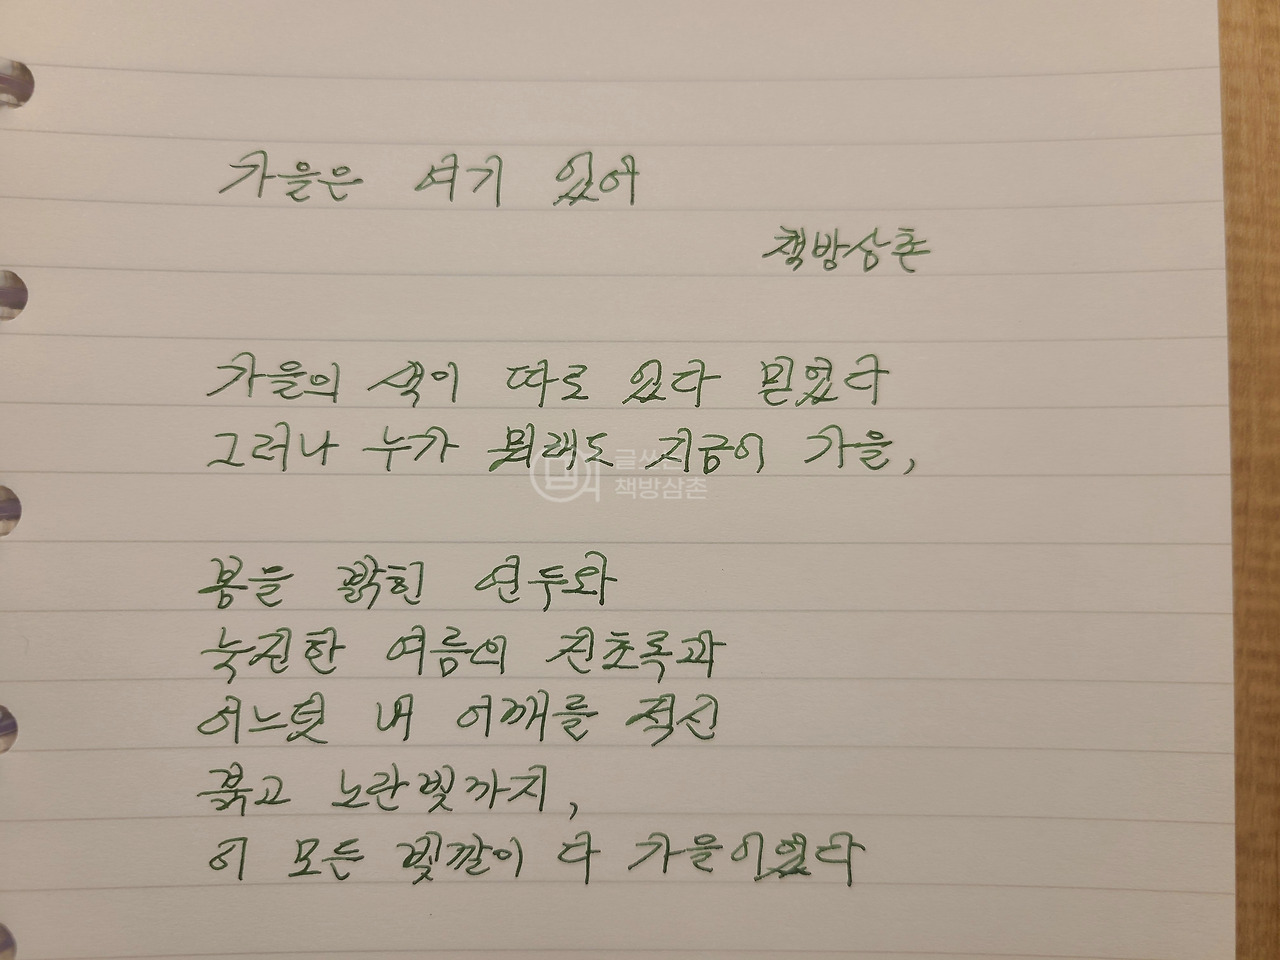 가을은 여기 있어
책방삼촌
가을의 색이 따로 있다 믿었다
그러나 누가 뭐래도 지금이 가을,
글쓰는
책방삼촌
봄을 밝힌 연두와
눅진한 여름의 진초록과
어느덧 내 어깨를 적신
붉고 노란빛까지,
이 모든 빛깔이 다 가을이었다